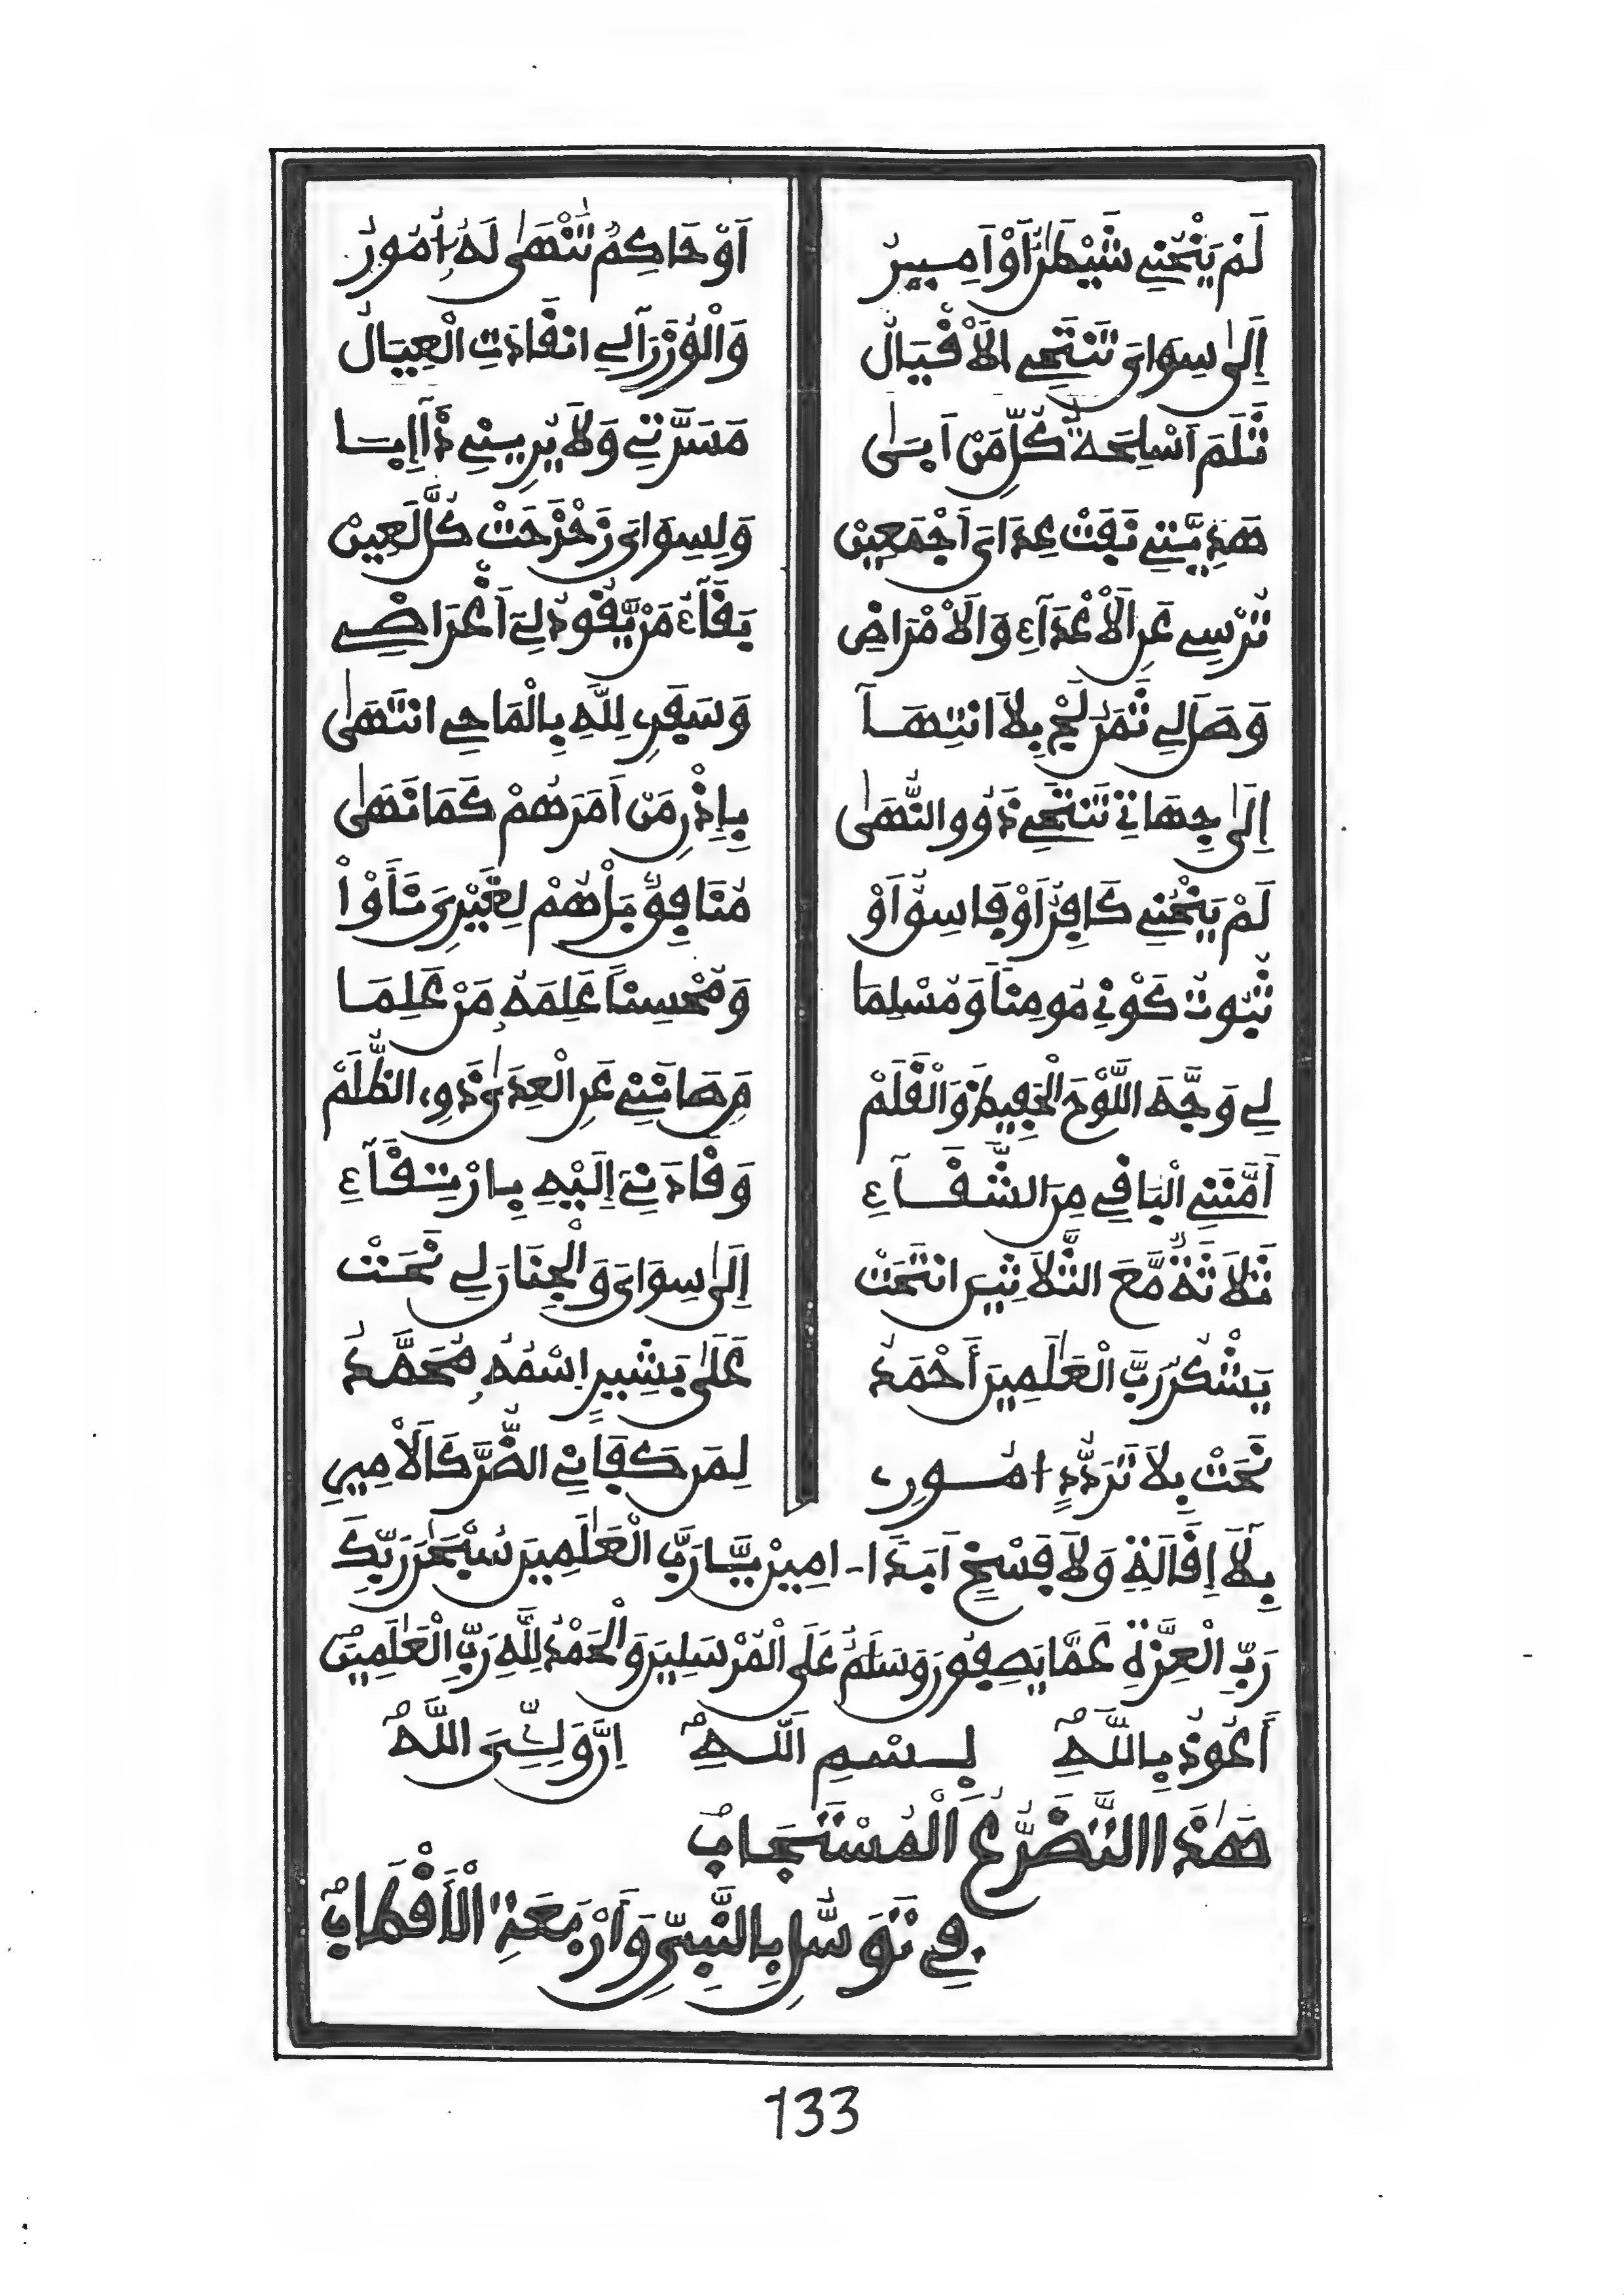 لَمْ يَنْحُنِي شَيْطَٰنٌ اَوْ اَمِيرُ اَوْ حَاكِمٌ تُنْهَىٰ لَهُ أُمُورُ
إِلَىٰ سِوَاىَ تَنْتَحِي الَاقْيَالُ وَالْوُزَرَا لِي انْقَادَتِ الْعِيَالُ
ثَلَمَ اَسْلِحَةَ كُلِّ مَنْ اَبَىٰ مَسَرَّتِي وَلَا يُرِينِي ذَا إِبَا
هَدِيَّتِي نَفَتْ عِدَاىَ اَجْمَعِينْ وَلِسِوَاىَ زَحْزَحَتْ كُلَّ لَعِينْ
تُرْسِي عَنِ الَاعْدَآءِ وَالَامْرَاضِ بَقَآءُ مَنْ يَّقُودُ لِيَ اَغْرَاضِي
وَهَىٰ لِي ثَمَنُ بِلَا انْتِهَا وَسَفَرِى لِلَّهِ بِالْمَاحِي انْتَهَىٰ
إِلَىٰ جِهَاتِي تَنْتَحِي ذَوُو النُّهَىٰ بِإِذْنِ مَنْ اَمَرَهُمْ كَمَا نَهَىٰ
لَمْ يَنْحُنِي كَافِرٌ اَوْ فَاسِقٌ اَوْ مُنَافِقٌ بَلْ هُمْ لِغَيْرِىَ نَأَوْا
ثُبُوتُ كَوْنِي مُومِناً وَمُسْلِمَا وَمُحْسِناً عَلِمَهُ مَنْ عَلِمَا
لِي وَجَّهَ اللَّوْحَ الْحَفِيظَ وَالْقَلَمْ مَن صَانَنِي عَنِ الْعِدَىٰ ذَوِى الظُّلَمْ
أَمَّنَنِي الْبَاقِي مِنَ الشَّقَآءِ وَقَادَنِي إِلَيْهِ بِارْتِقَآءِ
ثَلَاثَةٌ مَّعَ الثَّلَاثِينَ انْتَحَتْ إِلَىٰ سِوَاىَ وَالْجِنَانَ لِي نَحَتْ
يَشْكُرُ رَبَّ الْعَٰلَمِينَ أَحْمَدُ عَلَىٰ بَشِيرٍ اِسْمُهُ مُحَمَّدُ
نَحَتْ بِلَا تَرَدُّدٍ امُورِى لِمَن كَفَانِي الضُّرَّ كَالَامِيرِ
بِلَا إِقَالَةٍ وَلَا فَسْخٍ اَبَدَا - امِينْ يَّا رَبَّ الْعَٰلَمِينَ سُبْحَٰنَ رَبِّكَ
رَبِّ الْعِزَّةِ عَمَّا يَصِفُونَ وَسَلَٰمٌ عَلَى الْمُرْسَلِينَ وَالْحَمْدُ لِلَّهِ رَبِّ الْعَٰلَمِينَ
أَعُوذُ بِاللَّهِ بِسْمِ اللَّهِ إِنَّ وَلِـِّۧىَ اللَّهُ
هَٰذَا التَّضَرُّعُ الْمُسْتَجَابُ
فِي تَوَسُّلٍ بِالنَّبِيِّ وَأَرْبَعَةِ الْأَقْطَابِ
133